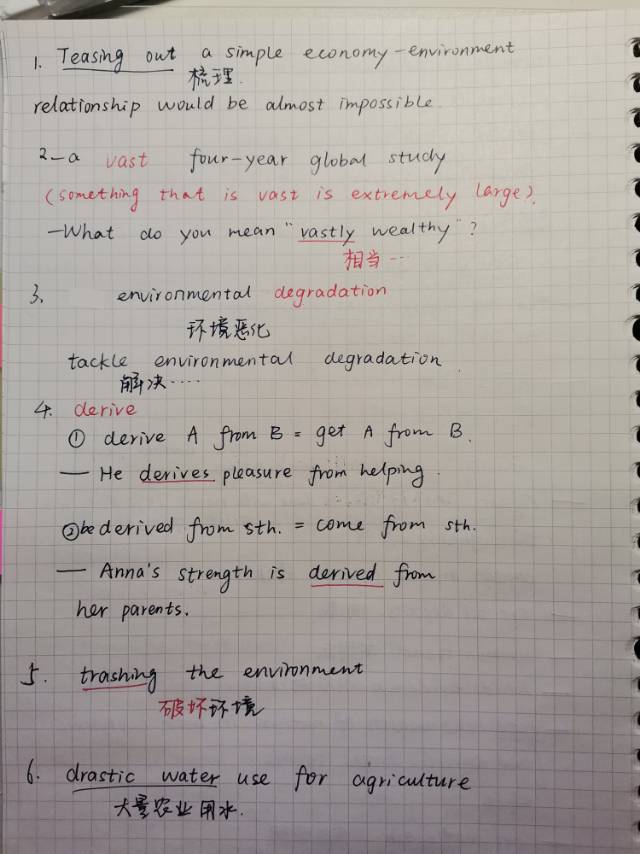 1. Teasing out a simple economy-environment
梳理.
relationship would be almost impossible
2-a vast four-year global study
(something that is vast is extremely large).
-What do you mean "vastly wealthy"?
相当…
3. environmental degradation
环境恶化
tackle environmental degradation
解决……
4. derive
① derive A from B = get A from B.
— He derives pleasure from helping.
② be derived from sth. = come from sth.
— Anna's strength is derived from
her parents.
5. trashing the environment
破坏环境
6. drastic water use for agriculture
大量农业用水.